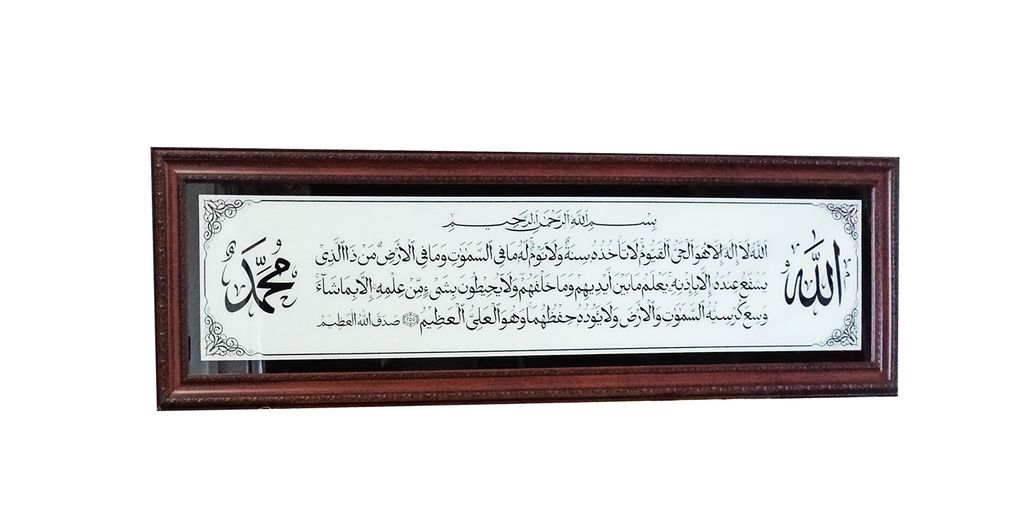 الله
بِسْمِ اللَّهِ الرَّحْمَٰنِ الرَّحِيمِ
اللَّهُ لَا إِلَٰهَ إِلَّا هُوَ الْحَيُّ الْقَيُّومُ لَا تَأْخُذُهُ سِنَةٌ وَلَا نَوْمٌ لَهُ مَا فِي السَّمَٰوَٰتِ وَمَا فِي الْأَرْضِ مَنْ ذَا الَّذِي
يَشْفَعُ عِنْدَهُ إِلَّا بِإِذْنِهِ يَعْلَمُ مَا بَيْنَ أَيْدِيهِمْ وَمَا خَلْفَهُمْ وَلَا يُحِيطُونَ بِشَيْءٍ مِنْ عِلْمِهِ إِلَّا بِمَا شَاءَ
وَسِعَ كُرْسِيُّهُ السَّمَٰوَٰتِ وَالْأَرْضَ وَلَا يَئُودُهُ حِفْظُهُمَا وَهُوَ الْعَلِيُّ الْعَظِيمُ ﴿٢٥٥﴾ صَدَقَ اللَّهُ الْعَظِيمُ
محمد